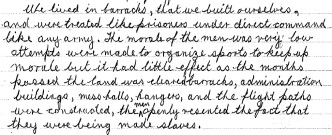 We lived in barracks, that we built ourselves,
and were treated like prisoners under direct command
like any army. The morale of the men was very low
attempts were made to organize sports to keep up
morale but it had little effect as the months
passed the land was cleared barracks, administration
buildings, mess-halls, hangers, and the flight paths
were constructed, the men openly resented the fact that
they were being made slaves.